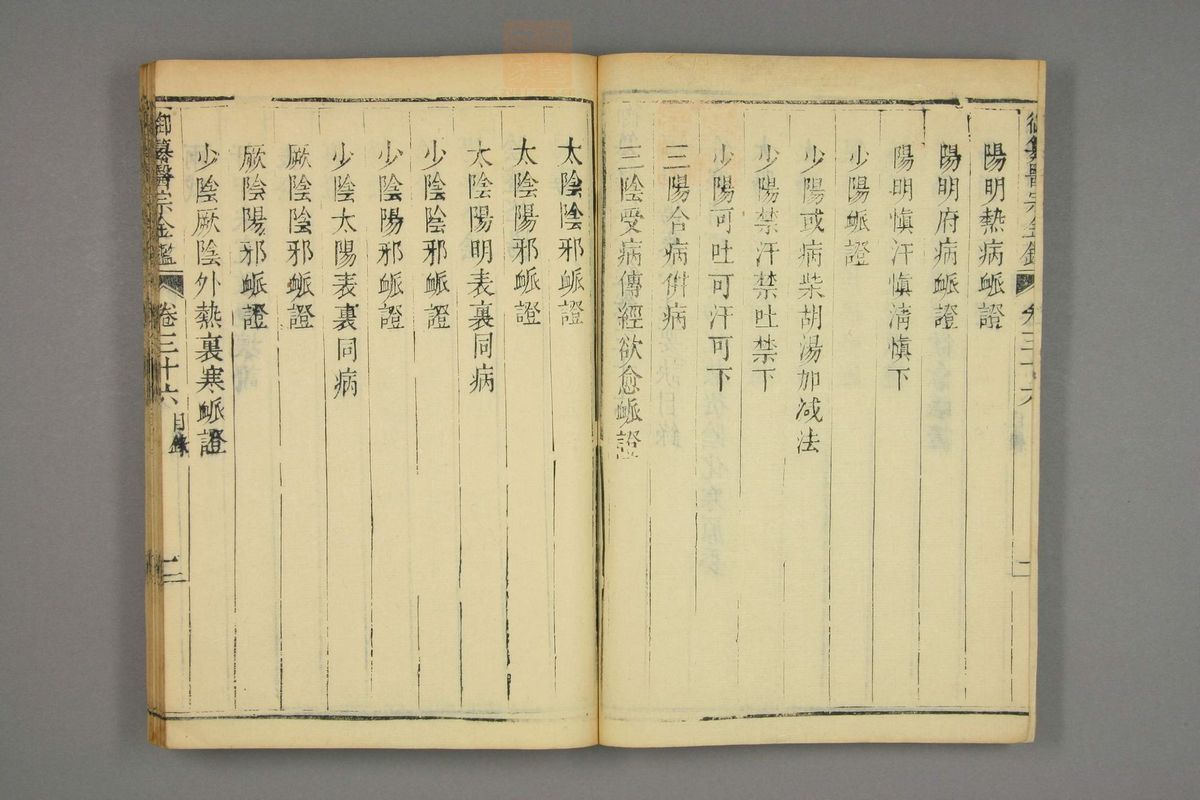 陽明熱病脈證
陽明府病脈證
陽明慎汗慎清慎下
少陽脈證
少陽或病柴胡湯加减法
少陽禁汗禁吐禁下
少陽可吐可汗可下
三陽合病併病
三陰受病傳經欲愈脈證
太陰陰邪脈證
太陰陽邪脈證
太陰陽明表裏同病
少陰陰邪脈證
少陰陽邪脈證
少陰太陽表裏同病
厥陰陰邪脈證
厥陰陽邪脈證
少陰厥陰外熱裏寒脈證
御纂醫宗金鑑 卷三十六 目錄 二